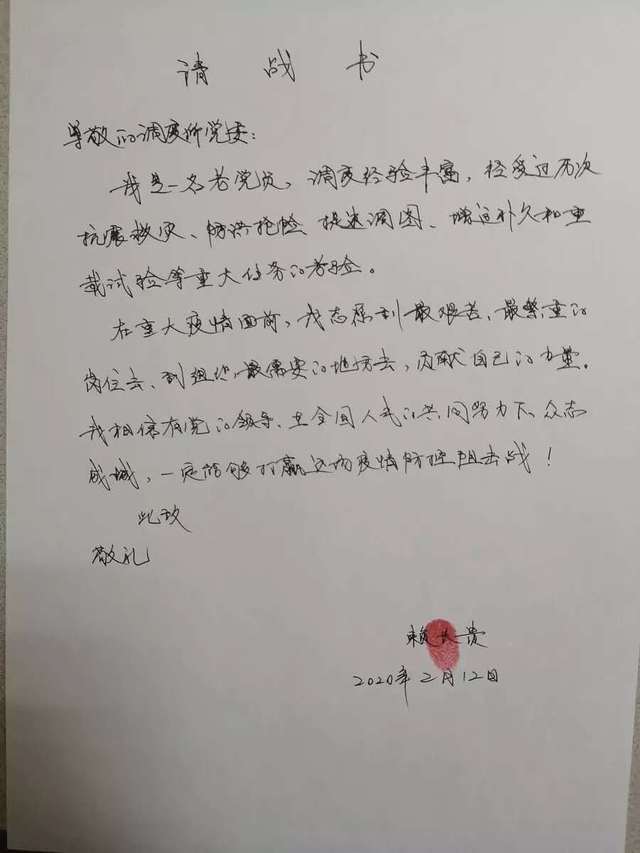 请战书
尊敬的调度所党委:
我是一名老党员,调度经验丰富,经受过历次
抗震救灾、防洪抢险、提速调图、增运补欠和重
载试验等重大任务的考验。
在重大疫情面前,我志愿到最艰苦、最繁重的
岗位去、到组织最需要的地方去,贡献自己的力量。
我相信有党的领导、在全国人民的共同努力下、众志
成城,一定能够打赢这场疫情防控阻击战!
此致
敬礼
赖长贵
2020年2月12日